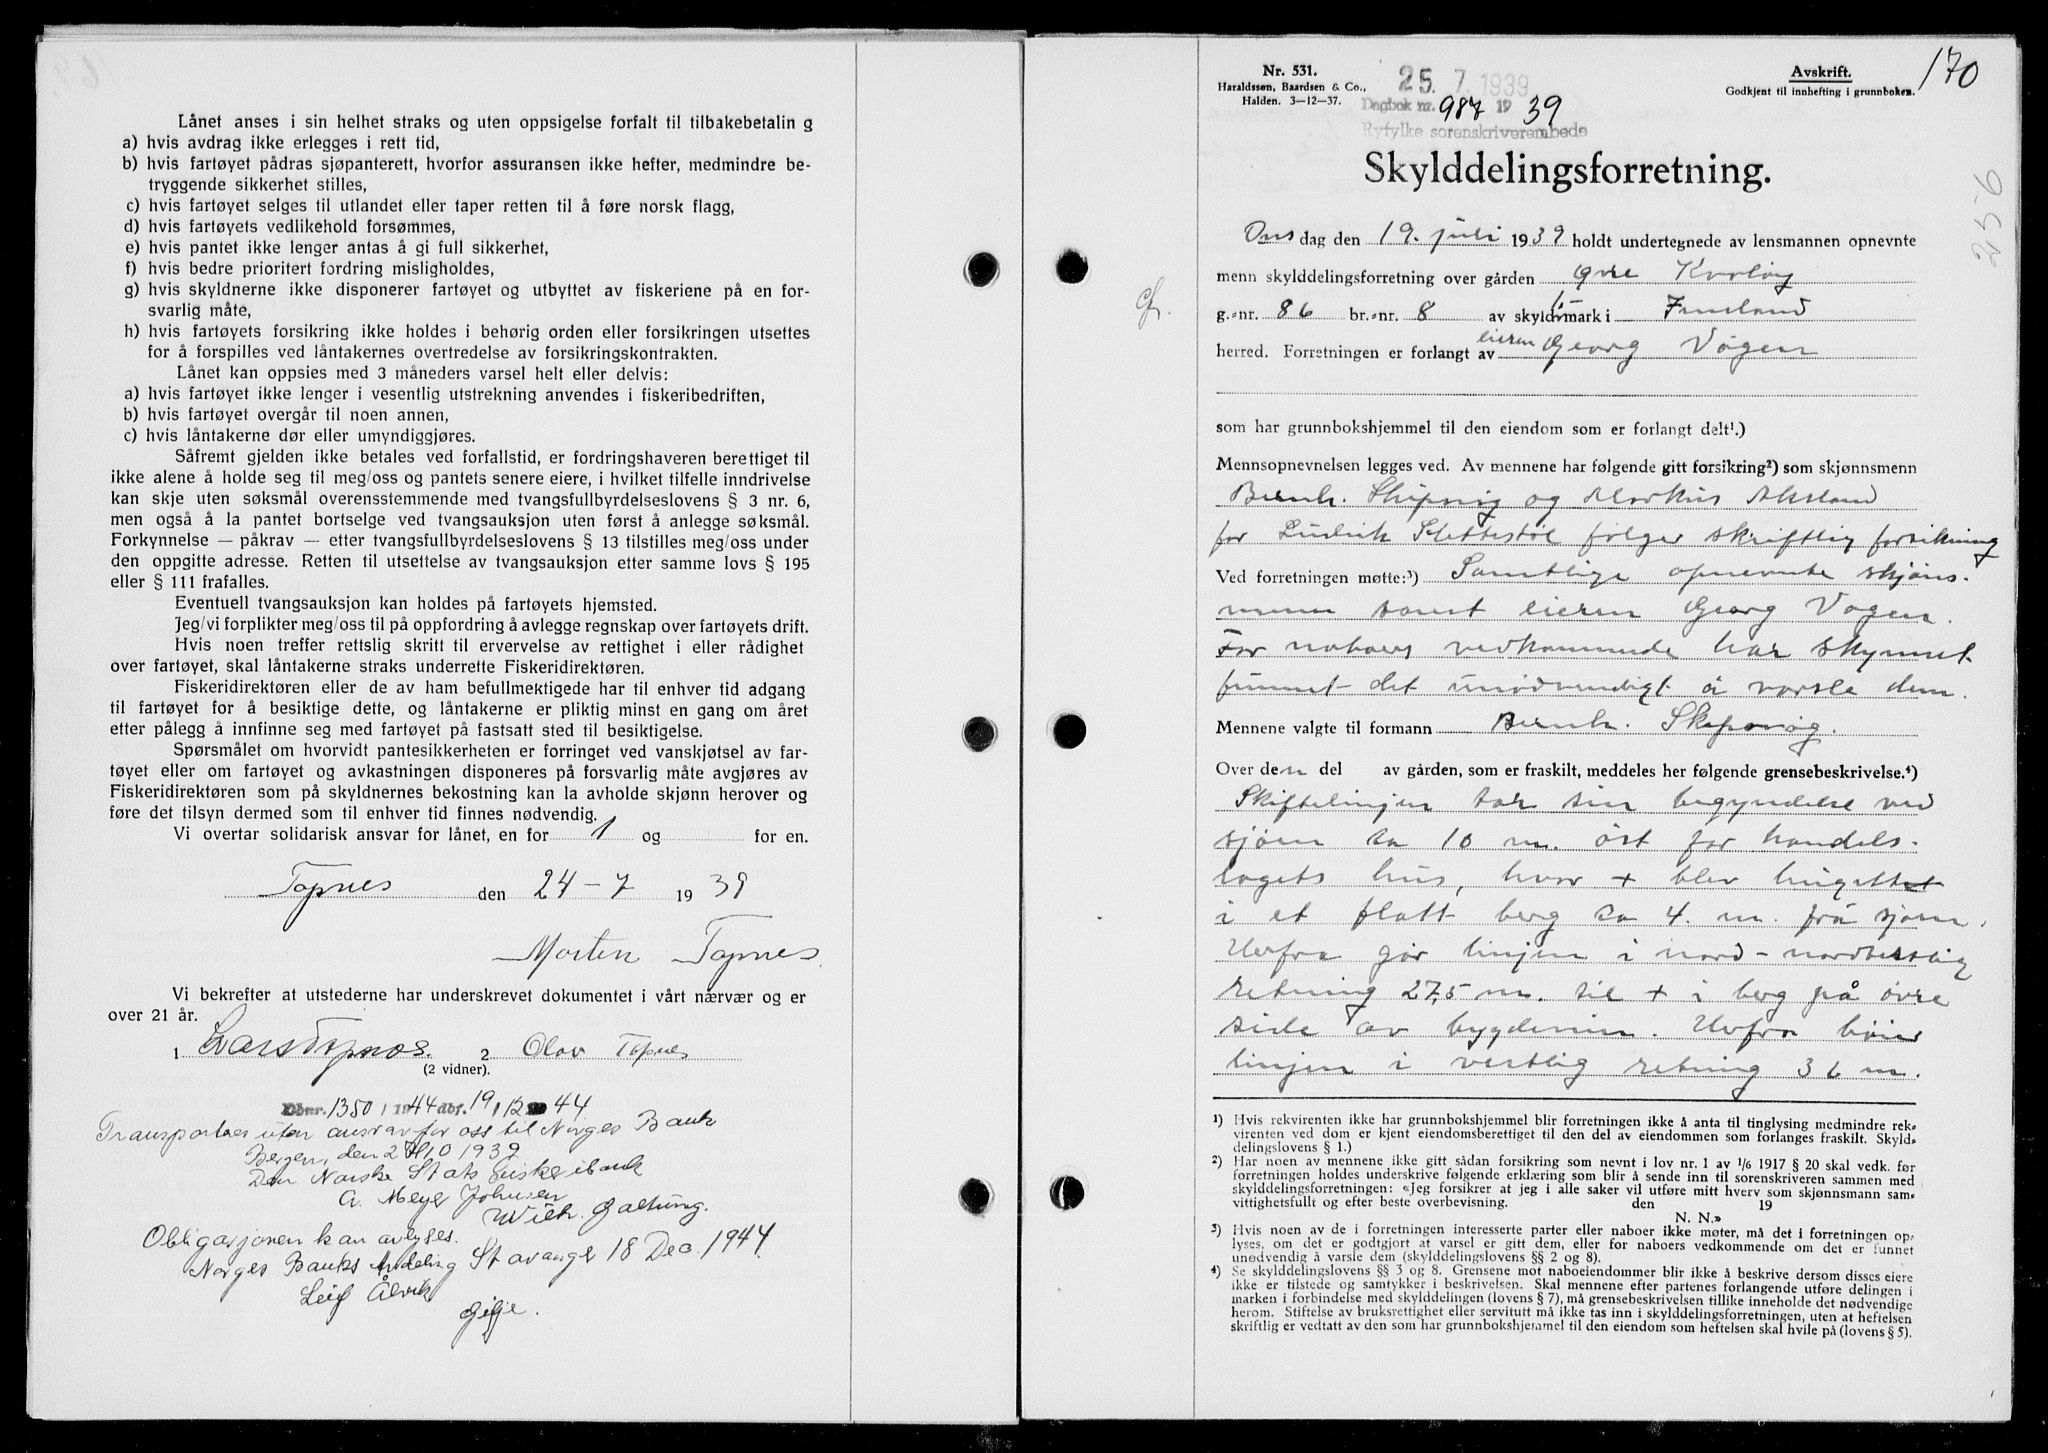 Lånet anses i sin helhet straks og uten oppsigelse forfalt til tilbakebetalin g
a) hvis avdrag ikke erlegges i rett tid,
b) hvis fartøyet pådras sjøpanterett, hvorfor assuransen ikke hefter, medmindre be-
tryggende sikkerhet stilles,
c) hvis fartøyet selges til utlandet eller taper retten til å føre norsk flagg,
d) hvis fartøyets vedlikehold forsømmes,
e) hvis pantet ikke lenger antas å gi full sikkerhet,
f) hvis bedre prioritert fordring misligholdes,
g) hvis skyldnerne ikke disponerer fartøyet og utbyttet av fiskeriene på en for-
svarlig måte,
h) hvis fartøyets forsikring ikke holdes i behørig orden eller forsikringen utsettes
for å forspilles ved låntakernes overtredelse av forsikringskontrakten.
Lånet kan oppsies med 3 måneders varsel helt eller delvis:
a) hvis fartøyet ikke lenger i vesentlig utstrekning anvendes i fiskeribedriften,
b) hvis fartøyet overgår til noen annen,
c) hvis låntakerne dør eller umyndiggjøres.
Såfremt gjelden ikke betales ved forfallstid, er fordringshaveren berettiget til
ikke alene å holde seg til meg/oss og pantets senere eiere, i hvilket tilfelle inndrivelse
kan skje uten søksmål overensstemmende med tvangsfullbyrdelseslovens § 3 nr. 6,
men også å la pantet bortselge ved tvangsauksjon uten først å anlegge søksmål.
Forkynnelse — påkrav — etter tvangsfullbyrdelseslovens § 13 tilstilles meg/oss under
den oppgitte adresse. Retten til utsettelse av tvangsauksjon etter samme lovs § 195
eller § 111 frafalles.
Eventuell tvangsauksjon kan holdes på fartøyets hjemsted.
Jeg/vi forplikter meg/oss til på oppfordring å avlegge regnskap over fartøyets drift.
Hvis noen treffer rettslig skritt til ervervelse av rettighet i eller rådighet
over fartøyet, skal låntakerne straks underrette Fiskeridirektøren.
Fiskeridirektøren eller de av ham befullmektigede har til enhver tid adgang
til fartøyet for å besiktige dette, og låntakerne er pliktig minst en gang om året
etter pålegg å innfinne seg med fartøyet på fastsatt sted til besiktigelse.
Spørsmålet om hvorvidt pantesikkerheten er forringet ved vanskjøtsel av far-
tøyet eller om fartøyet og avkastningen disponeres på forsvarlig måte avgjøres av
Fiskeridirektøren som på skyldnernes bekostning kan la avholde skjønn herover og
føre det tilsyn dermed som til enhver tid finnes nødvendig.
Vi overtar solidarisk ansvar for lånet, en for 1 og for en.
Tapnes den 24-7 1939
Morten Tapnes
Vi bekrefter at utstederne har underskrevet dokumentet i vårt nærvær og er
over 21 år.
1 Lars Tapnes. 2 Olav Tapnes
(2 vidner).
Dbnr. 1350/1944 dbf. 19/12 1944
Transporteres uten ansvar for oss til Norges Bank
Bergen, den 2/10 1939
Den Norske Stats Fiskeribank
A. Meyer Johnsen
Wilh. Galtung.
Obligasjonen kan avlyses.
Norges Banks Avdeling Stavanger 18 Dec. 1944
Leif Ålvik
Gilje.
Nr. 531.
Haraldssøn, Baardsen & Co.,
Halden. 3-12-37.
25. 7. 1939
Dagbok nr. 987 1939
Ryfylke sorenskriverembede
Avskrift.
Godkjent til innhefting i grunnboken.
170
Skylddelingsforretning.
Onsdag den 19. juli 1939 holdt undertegnede av lensmannen opnevnte
menn skylddelingsforretning over gården Øvre
g.-nr. 86 br.-nr. 8 av skyld mark i
herred. Forretningen er forlangt av eieren Georg Vågen
som har grunnbokshjemmel til den eiendom som er forlangt delt¹.)
Mennsopnevnelsen legges ved. Av mennene har følgende gitt forsikring²) som skjønnsmenn
Bernh. Skipevåg og Markus Aksland
for Ludvik Slettestøl følger skriftlig forsikning
Ved forretningen møtte:³) Samtlige opnevnte skjøns-
menn samt eieren Georg Vågen.
For naboers vedkommende har skjønnet
funnet det unødvendigt å varsle dem.
Mennene valgte til formann Bernh. Skipevåg.
Over den del av gården, som er fraskilt, meddeles her følgende grensebeskrivelse.⁴)
Skiftelinjen tar sin begyndelse ved
sjøen ca 10 m. øst for handels-
lagets hus, hvor + blev huget
i et flatt berg ca 4. m. frå sjøen.
Herfra går linjen i nord-nordvestlig
retning 27,5 m. til + i berg på øvre
side av bygdeveien. Herfra bøier
linjen i vestlig retning 36 m.
¹) Hvis rekvirenten ikke har grunnbokshjemmel blir forretningen ikke å anta til tinglysing medmindre rek-
virenten ved dom er kjent eiendomsberettiget til den del av eiendommen som forlanges fraskilt. Skyld-
delingslovens § 1.)
²) Har noen av mennene ikke gitt sådan forsikring som nevnt i lov nr. 1 av 1/6 1917 § 20 skal vedk. før
forretningen holdes underskrive følgende erklæring som blir å sende inn til sorenskriveren sammen med
skylddelingsforretningen: «Jeg forsikrer at jeg i alle saker vil utføre mitt hverv som skjønnsmann sam-
vittighetsfullt og efter beste overbevisning. den 19
N. N.»
³) Hvis noen av de i forretningen interesserte parter eller naboer ikke møter, må det i forretningen op-
lyses, om det er godtgjort at varsel er gitt dem, eller for naboers vedkommende om det er funnet
unødvendig å varsle dem (skylddelingslovens §§ 2 og 8).
⁴) Se skylddelingslovens §§ 3 og 8. Grensene mot naboeiendommer blir ikke å beskrive dersom disses eiere
ikke er tilstede og samtykker i beskrivelsen. Skal mennene efter partenes forlangende utføre delingen i
marken i forbindelse med skylddelingen (lovens § 7), må grensebeskrivelsen tillike inneholde det nødvendige
herom. Stiftelse av bruksrettighet eller servitutt må ikke tas inn i skylddelingsforretningen, uten at heftelsen
skriftlig er vedtatt av den som har grunnbokshjemmel til den eiendom som heftelsen skal hvile på (lovens § 5).